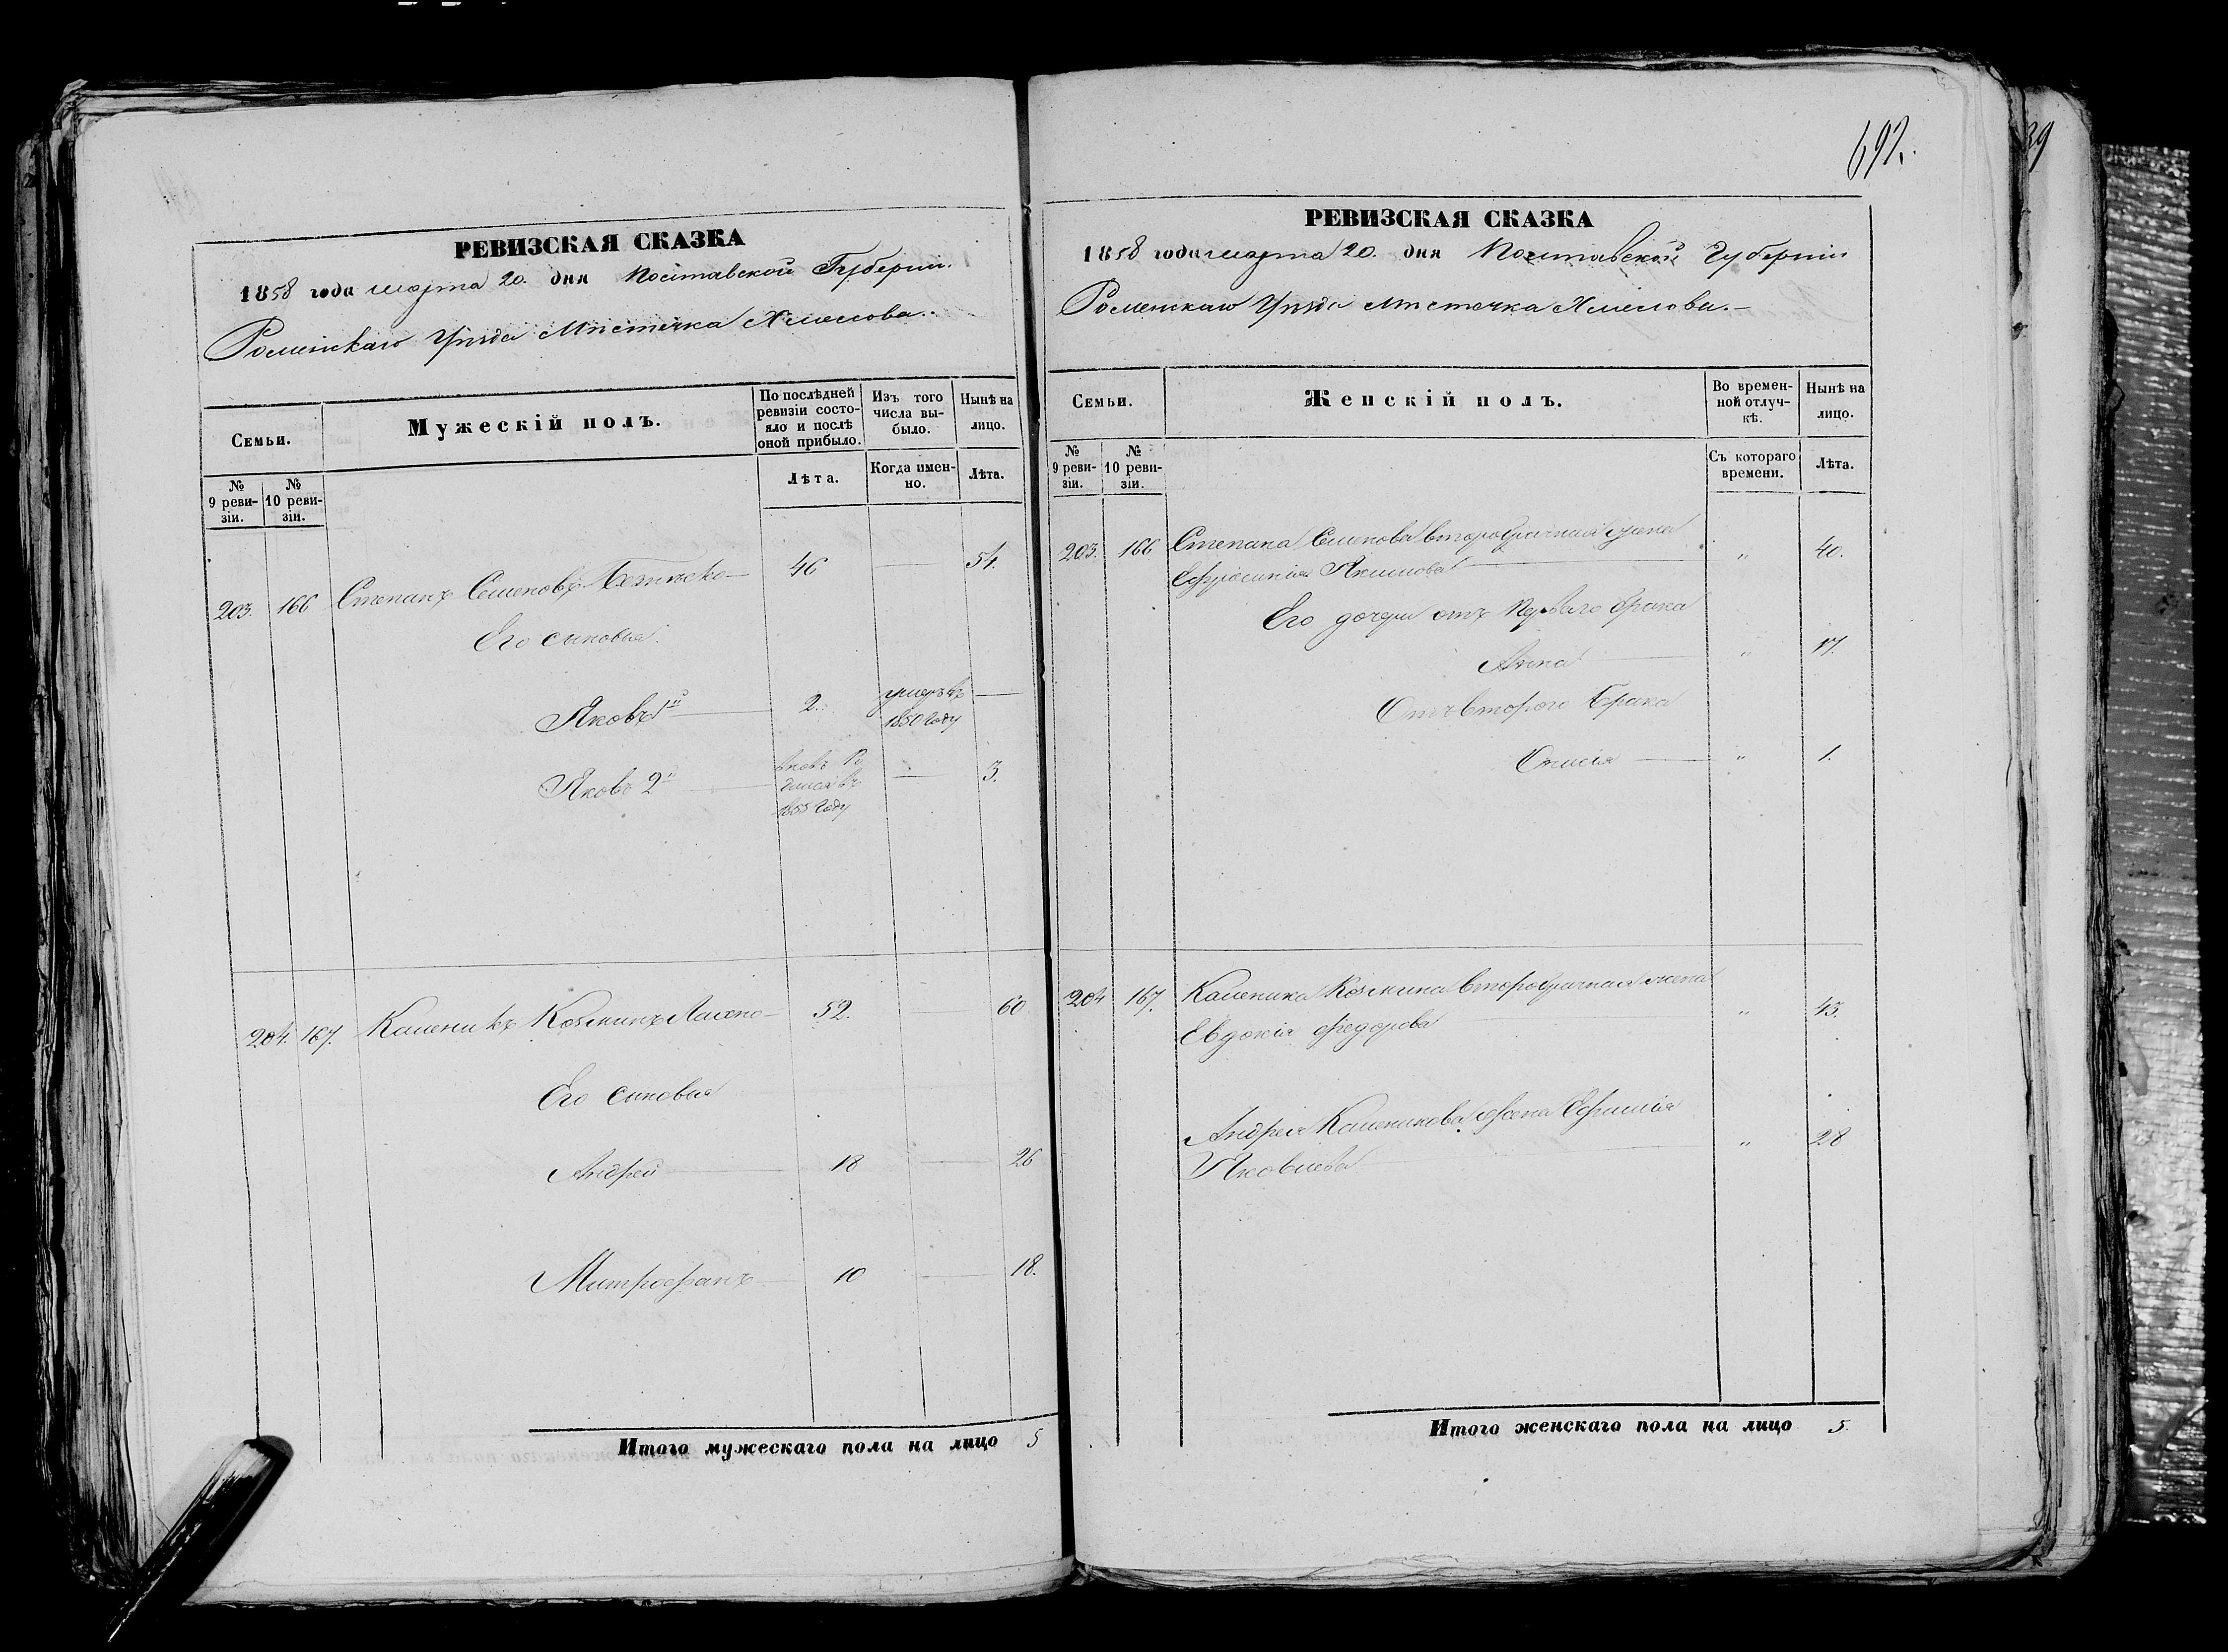 РЕВИЗСКАЯ СКАЗКА
1858 года марта 20. дня Полтавской Губерніи.
Роменскаго Уѣзда Мѣстечка Хмелова.
Семьи.
Мужескій полъ.
По послѣдней ревизіи состояло и послѣ оной прибыло.
Изъ того числа выбыло.
Нынѣ на лицо.
№ 9 ревизіи.
№ 10 ревизіи.
Лѣта.
Когда именно.
Лѣта.
203. 166 Степанъ Семеновъ 46 — 54.
Его сыновья.
Яковъ 1й 2. умеръ въ 1850 году —
Яковъ 2й вновь родился въ 1855 году — 3.
204. 167. Каленикъ Козминъ 52. — 60
Его сыновья
Андрей 18 — 26
Митрофанъ 10 — 18.
Итого мужескаго пола на лицо 5
692.
39
РЕВИЗСКАЯ СКАЗКА
1858 года марта 20. дня Полтавской Губерніи
Роменскаго Уѣзда Мѣстечка Хмелова.—
Семьи.
Женскій полъ.
Во временной отлучкѣ.
Нынѣ на лицо.
№ 9 ревизіи.
№ 10 ревизіи.
Съ котораго времени.
Лѣта.
203. 166 Степана Семенова второбрачная жена
Ефросинія Якимова — „ 40.
Его дочери отъ перваго брака
Анна — „ 17.
Отъ втораго брака
— „ 1.
204 167. Каленика Козмина второбрачная жена
Евдокія Федорова — „ 43.
Андрея Каленикова жена
Яковлева — „ 28
Итого женскаго пола на лицо 5.